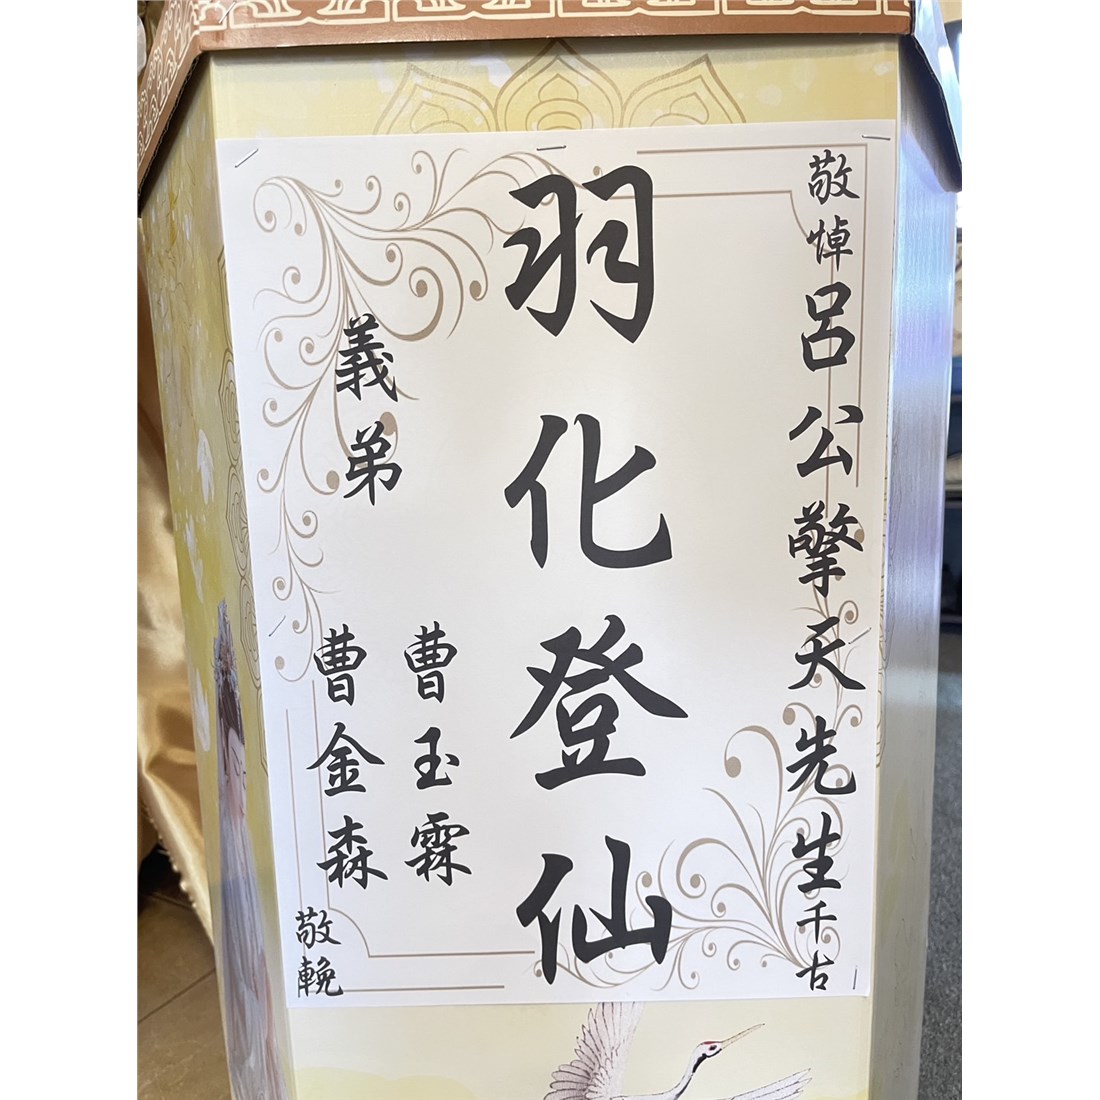 敬悼呂公擎天先生千古
羽化登仙
義弟
曹玉霖
曹金森
敬輓